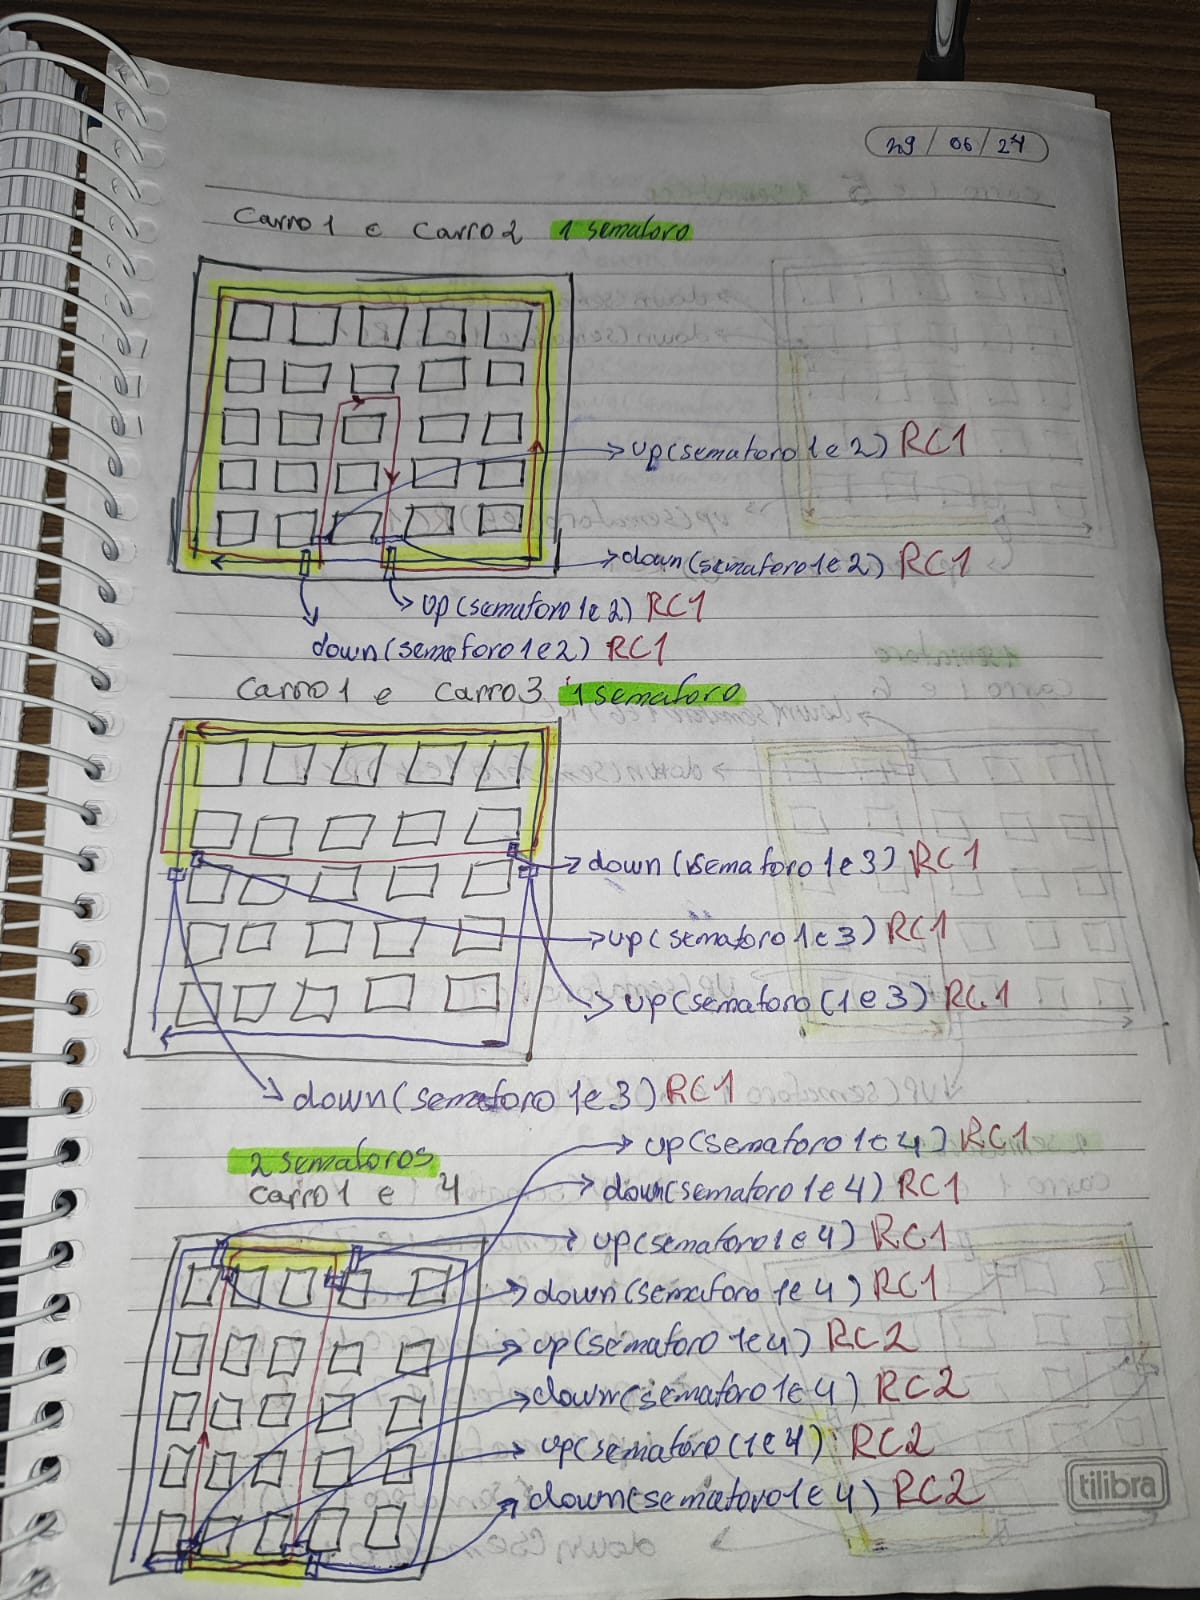 29/06/24
Carro1 e Carro2 1 semaforo
up(semaforo 1e2) RC1
down(semaforo1e2) RC1
up(semaforo1e2) RC1
down(semaforo1e2) RC1
Carro1 e Carro3 1 semaforo
down(semaforo 1e3) RC1
up(semaforo 1e3) RC1
up(semaforo(1e3) RC1
down(semaforo 1e3) RC1
up(semaforo 1e4) RC1
2 semaforos
Carro1 e 4
down(semaforo 1e4) RC1
up(semaforo1e4) RC1
down(semaforo 1e4) RC1
up(semaforo 1e4) RC2
down(semaforo1e4) RC2
up(semaforo(1e4) RC2
down(semaforo1e4) RC2
tilibra